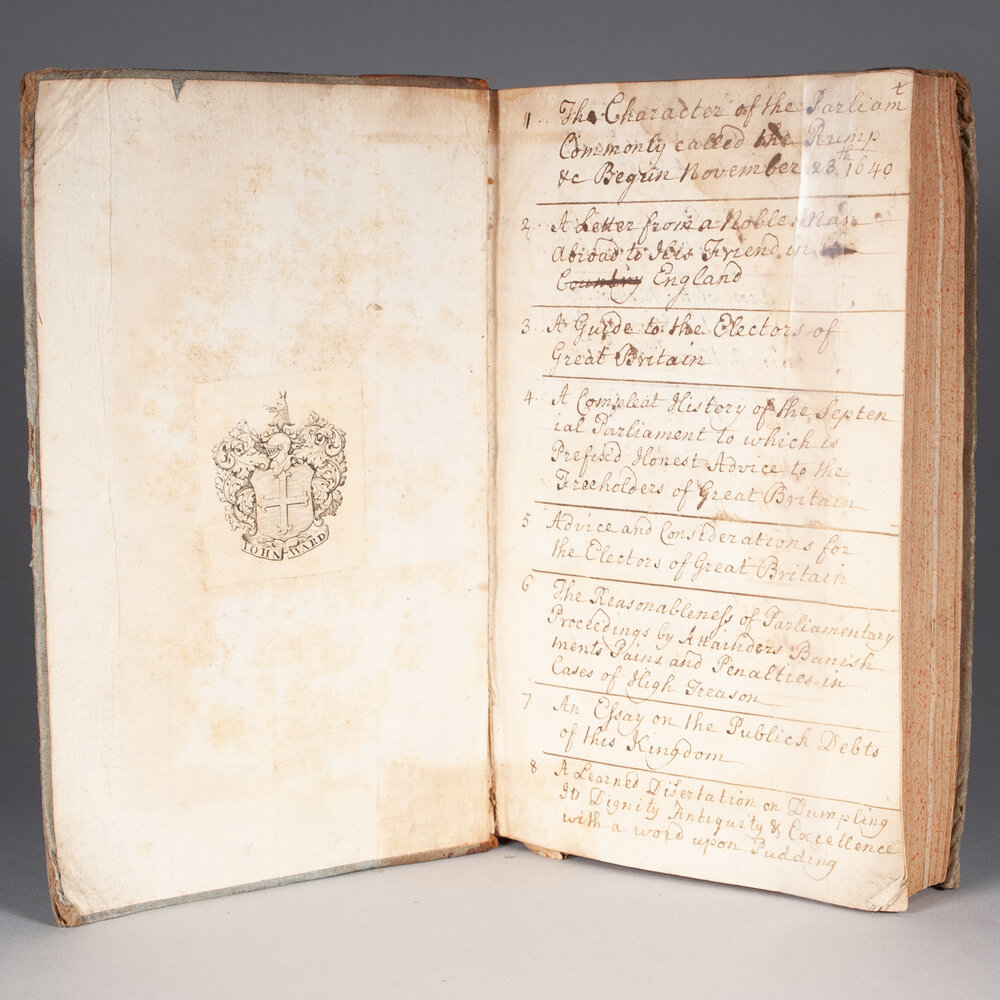 IOHN WARD
t
1 .. The Character of the Parliam
Commonly called the Rump
&c Begun November 23th 1640
2 .. A Letter from a Noble Man
Abroad to His Friend in
Country England
3 A Guide to the Electors of
Great Britain
4 .. A Compleat History of the Septen
ial Parliament to which is
Prefixd Honest Advice to the
Freeholders of Great Britain
5 Advice and Considerations for
the Electors of Great Britain
6 The Reasonableneſs of Parliamentary
Proceedings by Attainders Banish
ments Pains and Penalties in
Cases of High Treason
7 An Eſsay on the Publick Debts
of this Kingdom
8 A Learned Disertation on Dumpling
Its Dignity Antiquity & Excellence
with a word upon Pudding